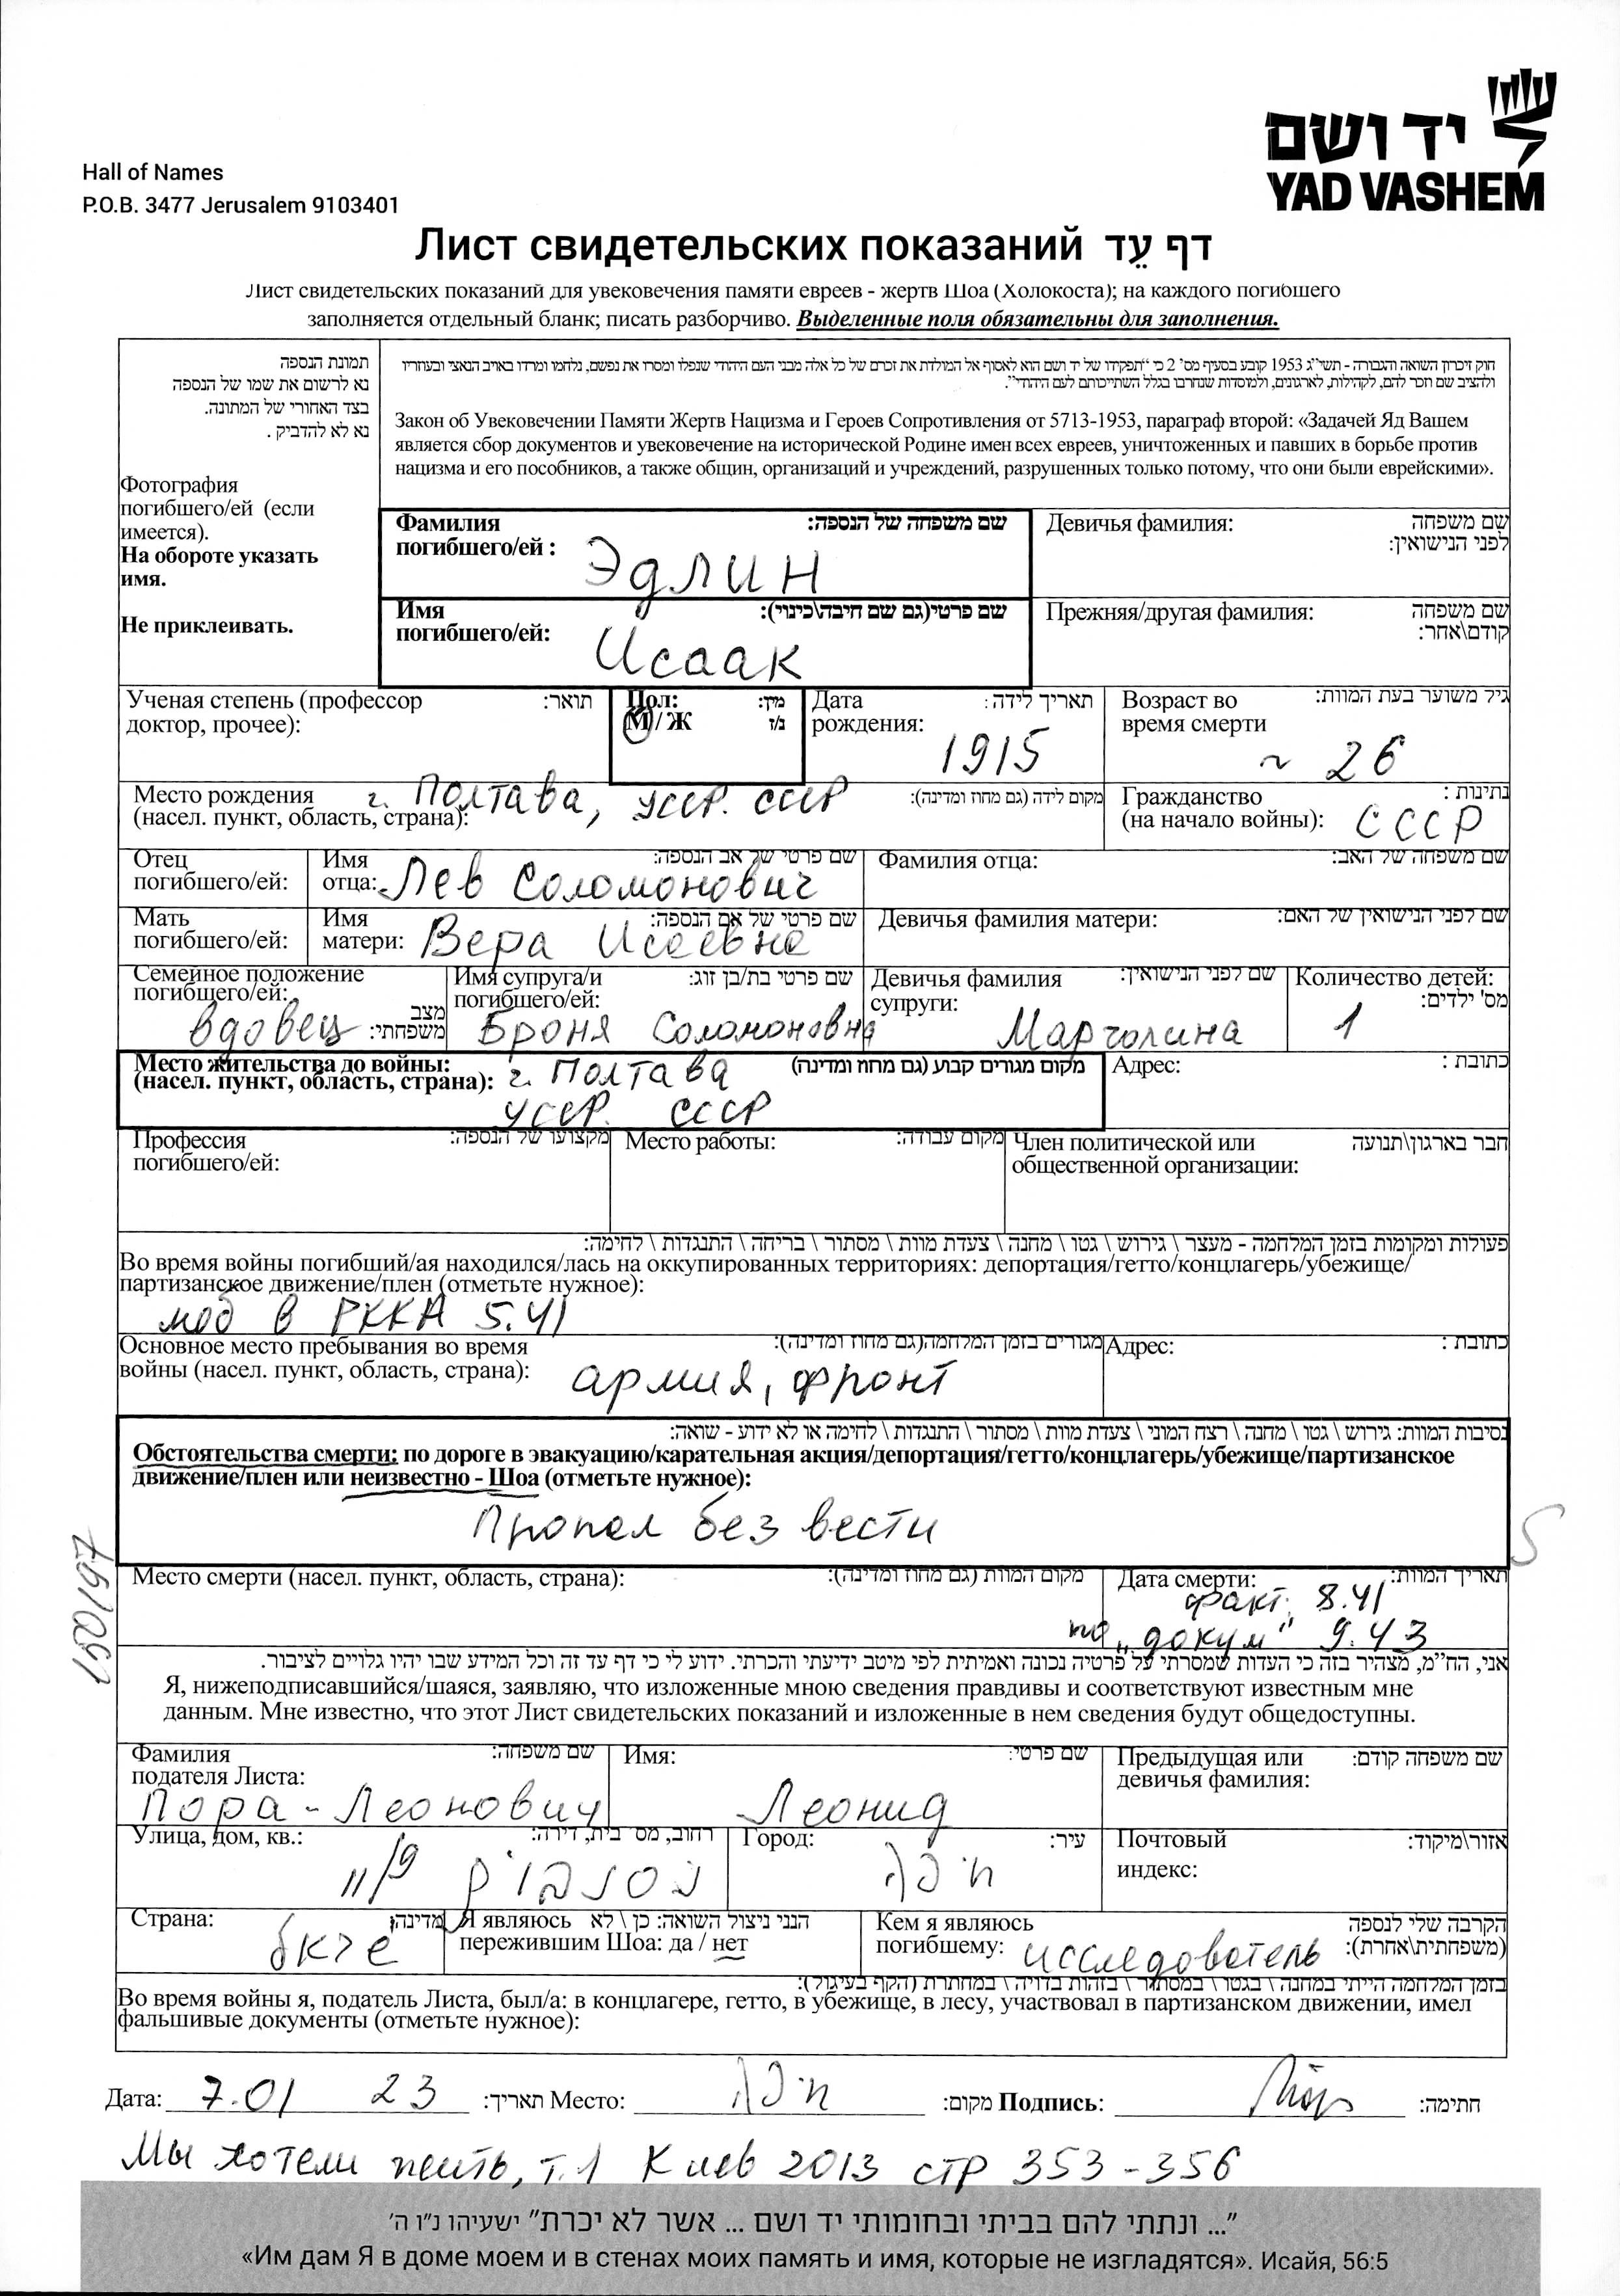 יד ושם
YAD VASHEM
Hall of Names
P.O.B. 3477 Jerusalem 9103401
Лист свидетельских показаний דף עֵד
Лист свидетельских показаний для увековечения памяти евреев - жертв Шоа (Холокоста); на каждого погибшего
заполняется отдельный бланк; писать разборчиво. Выделенные поля обязательны для заполнения.
תמונת הנספה
נא לרשום את שמו של הנספה
בצד האחורי של המתונה.
נא לא להדביק .
Фотография
погибшего/ей (если
имеется).
На обороте указать
имя.
Не приклеивать.
חוק זיכרון השואה והגבורה - תשי"ג 1953 קובע בסעיף מס' 2 כי "תפקידו של יד ושם הוא לאסוף אל המולדת את זכרם של כל אלה מבני העם היהודי שנפלו ומסרו את נפשם, נלחמו ומרדו באויב הנאצי ובעוזריו
ולהציב שם וזכר להם, לקהילות, לארגונים, ולמוסדות שנחרבו בגלל השתייכותם לעם היהודי".
Закон об Увековечении Памяти Жертв Нацизма и Героев Сопротивления от 5713-1953, параграф второй: «Задачей Яд Вашем
является сбор документов и увековечение на исторической Родине имен всех евреев, уничтоженных и павших в борьбе против
нацизма и его пособников, а также общин, организаций и учреждений, разрушенных только потому, что они были еврейскими».
Фамилия שם משפחה של הנספה:
погибшего/ей :
Эдлин
Девичья фамилия: שם משפחה
לפני הנישואין:
Имя שם פרטי(גם שם חיבה\כינוי):
погибшего/ей:
Исаак
Прежняя/другая фамилия: שם משפחה
קודם\אחר:
Ученая степень (профессор תואר:
доктор, прочее):
Пол: מין:
М / Ж ז/נ
Дата תאריך לידה:
рождения:
1915
Возраст во גיל משוער בעת המוות:
время смерти
~ 26
Место рождения מקום לידה (גם מחוז ומדינה):
(насел. пункт, область, страна):
г. Полтава, УССР. СССР
Гражданство נתינות :
(на начало войны): СССР
Отец
погибшего/ей:
Имя שם פרטי של אב הנספה:
отца: Лев Соломонович
Фамилия отца: שם משפחה של האב:
Мать
погибшего/ей:
Имя שם פרטי של אם הנספה:
матери: Вера Исаевна
Девичья фамилия матери: שם לפני הנישואין של האם:
Семейное положение
погибшего/ей: מצב
משפחתי:
вдовец
Имя супруга/и שם פרטי בת/בן זוג:
погибшего/ей:
Броня Соломоновна
Девичья фамилия שם לפני הנישואין:
супруги:
Марголина
Количество детей:
מס' ילדים:
1
Место жительства до войны: מקום מגורים קבוע (גם מחוז ומדינה)
(насел. пункт, область, страна): г. Полтава
УССР. СССР
Адрес: כתובת :
Профессия מקצועו של הנספה:
погибшего/ей:
Место работы: מקום עבודה:
Член политической или חבר בארגון\תנועה
общественной организации:
פעולות ומקומות בזמן המלחמה - מעצר \ גירוש \ גטו \ מחנה \ צעדת מוות \ מסתור \ בריחה \ התנגדות \ לחימה:
Во время войны погибший/ая находился/лась на оккупированных территориях: депортация/гетто/концлагерь/убежище/
партизанское движение/плен (отметьте нужное):
моб в РККА 5.41
Основное место пребывания во время מגורים בזמן המלחמה(גם מחוז ומדינה):
войны (насел. пункт, область, страна): армия, фронт
Адрес: כתובת :
נסיבות המוות: גירוש \ גטו \ מחנה \ רצח המוני \ צעדת מוות \ מסתור \ התנגדות \ לחימה או לא ידוע - שואה:
Обстоятельства смерти: по дороге в эвакуацию/карательная акция/депортация/гетто/концлагерь/убежище/партизанское
движение/плен или неизвестно - Шоа (отметьте нужное):
Пропал без вести
Место смерти (насел. пункт, область, страна): מקום המוות (גם מחוז ומדינה):
Дата смерти: תאריך המוות:
факт. 8.41
по „докум" 9.43
אני, החי"מ, מצהיר בזה כי העדות שמסרתי על פרטיה נכונה ואמיתית לפי מיטב ידיעתי והכרתי. ידוע לי כי דף עד זה וכל המידע שבו יהיו גלויים לציבור.
Я, нижеподписавшийся/шаяся, заявляю, что изложенные мною сведения правдивы и соответствуют известным мне
данным. Мне известно, что этот Лист свидетельских показаний и изложенные в нем сведения будут общедоступны.
Фамилия שם משפחה:
подателя Листа:
Пора-Леонович
Имя: שם פרטי:
Леонид
Предыдущая или שם משפחה קודם:
девичья фамилия:
Улица, дом, кв.: רחוב, מס בית, דירה:
Город: עיר:
חיפה
Почтовый אזור\מיקוד:
индекс:
Страна: מדינה:
Я являюсь הנני ניצול השואה: כן \ לא
пережившим Шоа: да / нет
Кем я являюсь הקרבה שלי לנספה
погибшему: исследователь (משפחתית\אחרת):
בזמן המלחמה הייתי במחנה \ בגטו \ במסתור \ בזהות בדויה \ במחתרת (הקף בעיגול):
Во время войны я, податель Листа, был/а: в концлагере, гетто, в убежище, в лесу, участвовал в партизанском движении, имел
фальшивые документы (отметьте нужное):
Дата: 7.01 23 תאריך: Место: חיפה מקום: Подпись: חתימה:
Мы хотели жить, т.1 Киев 2013 стр 353-356
"... ונתתי להם בביתי ובחומותי יד ושם ... אשר לא יכרת" ישעיהו נ"ו ה'
«Им дам Я в доме моем и в стенах моих память и имя, которые не изгладятся». Исайя, 56:5